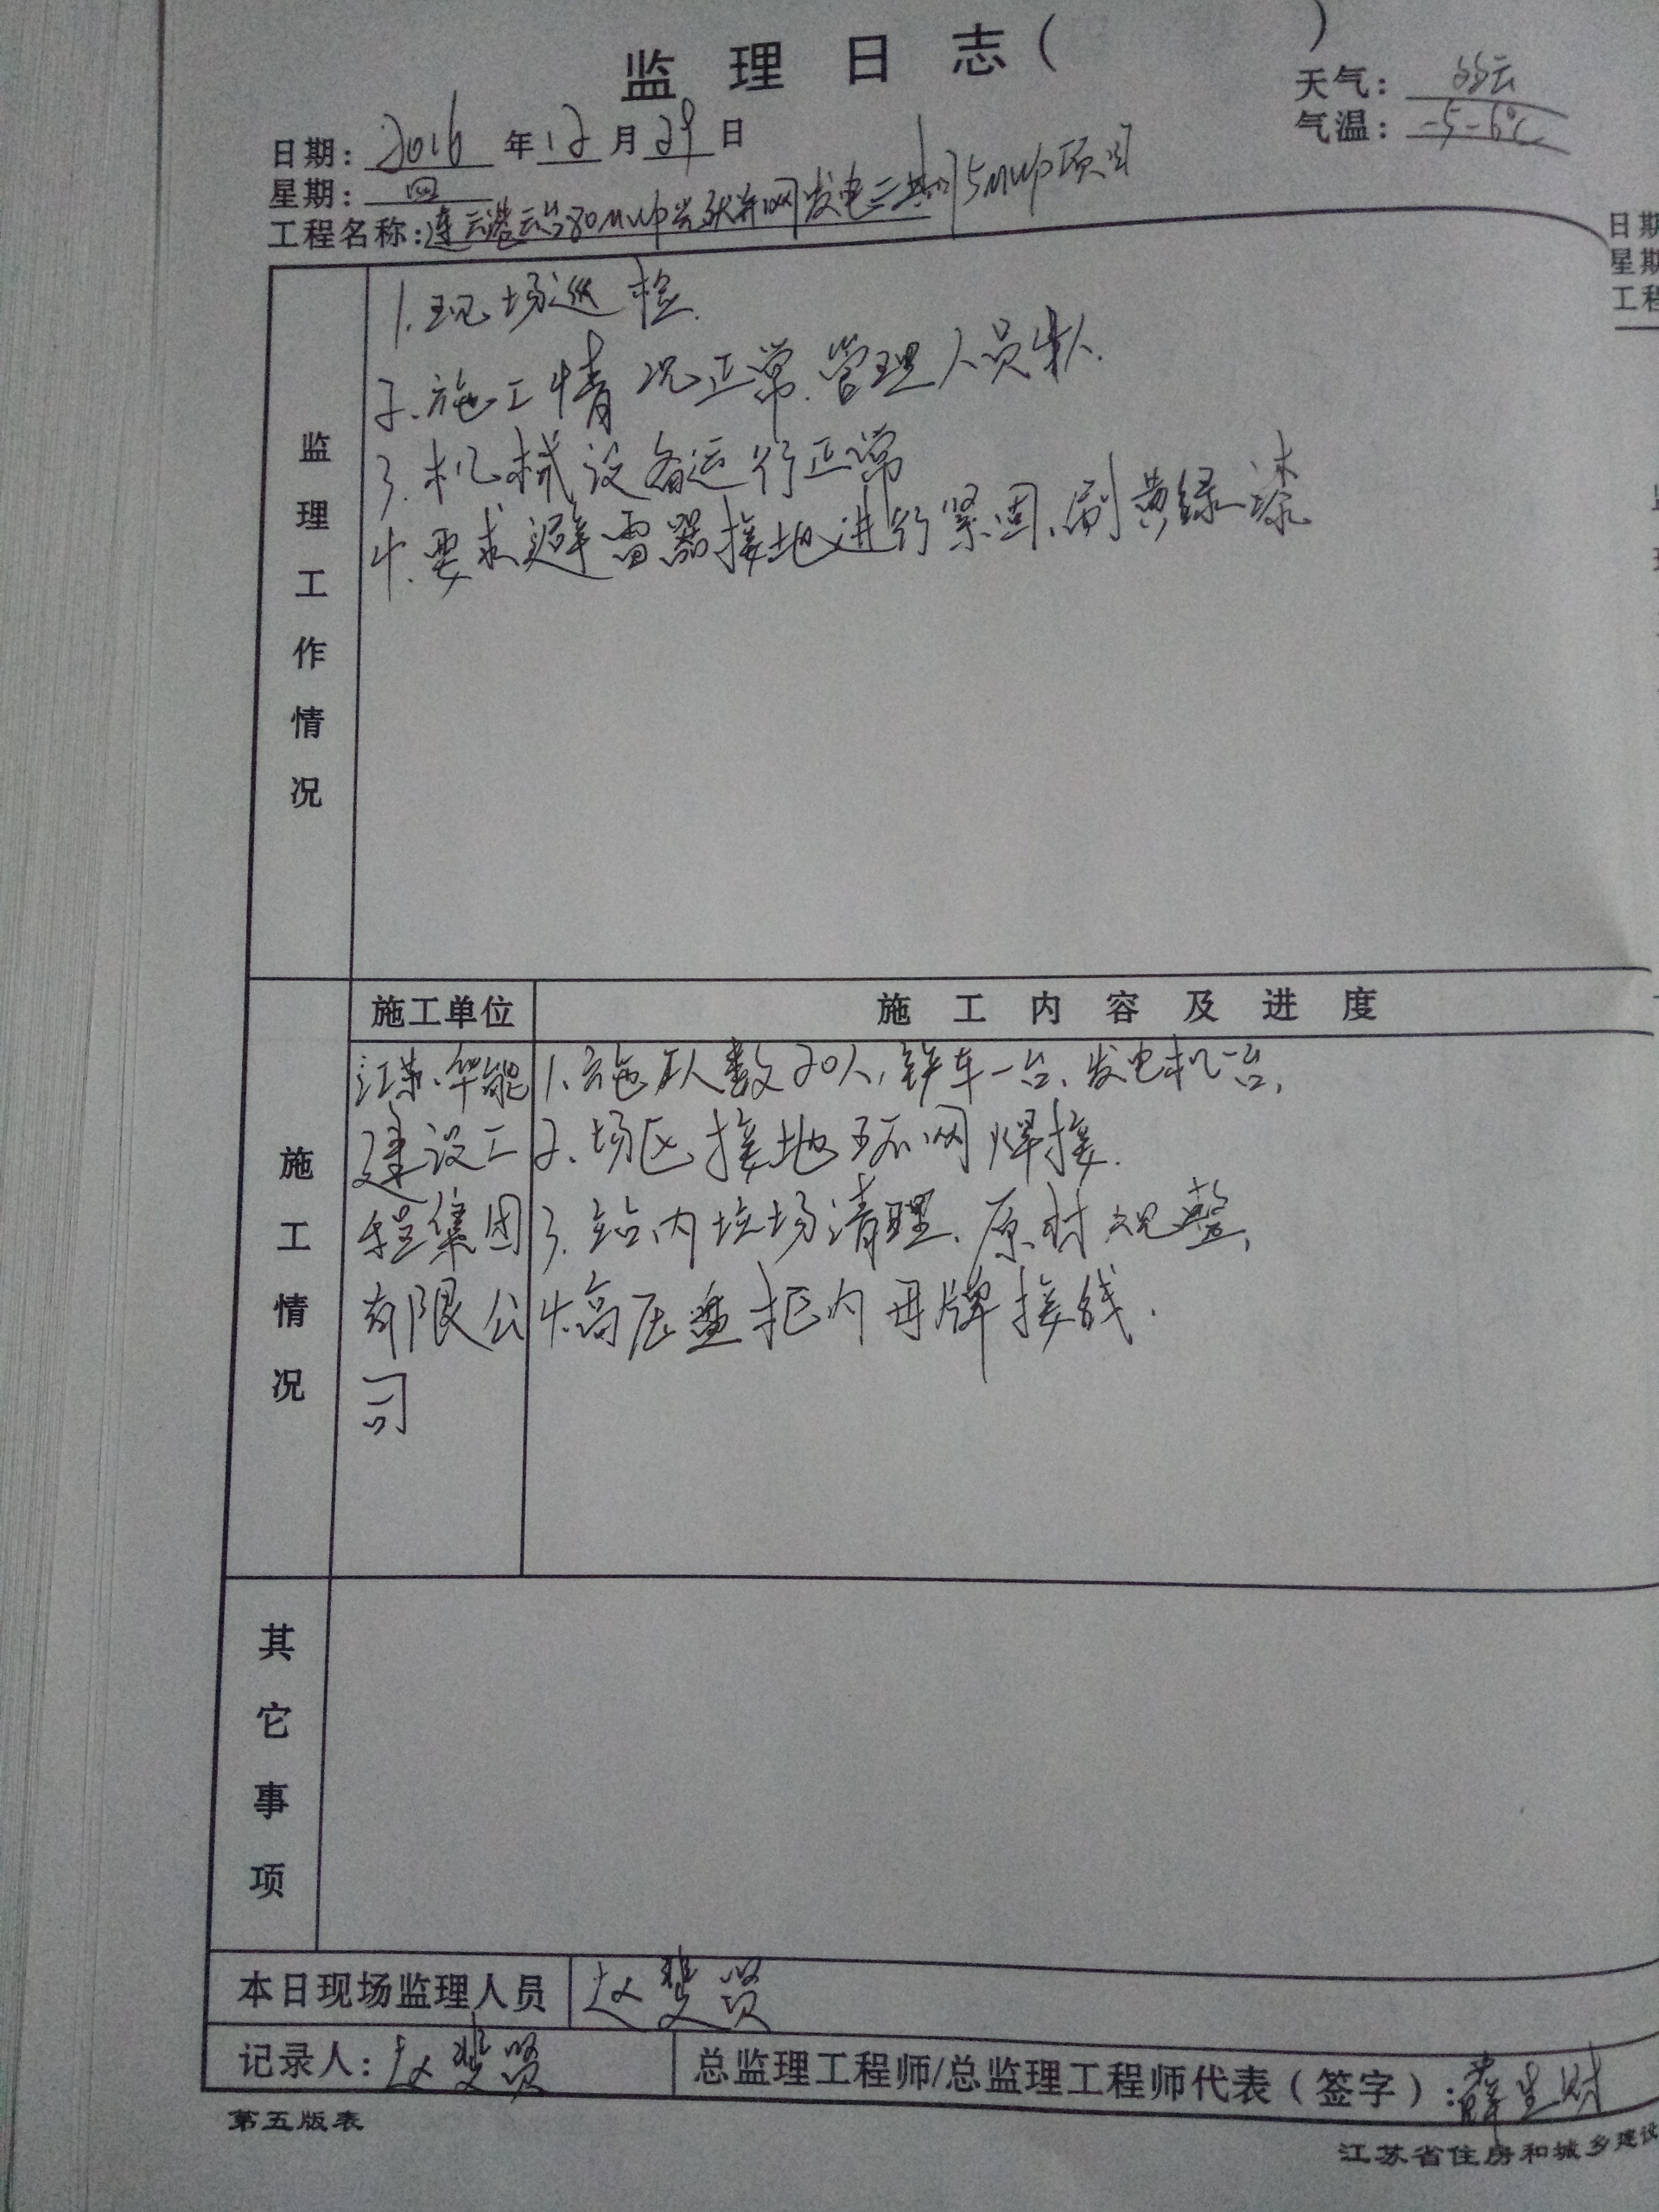 监理日志（　　　）
天气：多云
日期：2016年12月29日
气温：-5-6℃
星期：四
工程名称：连云港云台80MWp光伏并网发电三期75MWp项目
监理工作情况
1.现场巡检.
2.施工情况正常.管理人员4人.
3.机械设备运行正常
4.要求避雷器接地进行紧固、刷黄绿漆
施工单位
施工内容及进度
施工情况
江苏华能
建设工
程集团
有限公
司
1.施工人数20人,铲车一台、发电机一台,
2.场区接地环网焊接.
3.站内垃场清理、原材规整,
4.高压盘柜内母牌接线.
其它事项
本日现场监理人员
赵斐贤
记录人：赵斐贤
总监理工程师/总监理工程师代表（签字）：薛生财
第五版表
江苏省住房和城乡建设
日期
星期
工程